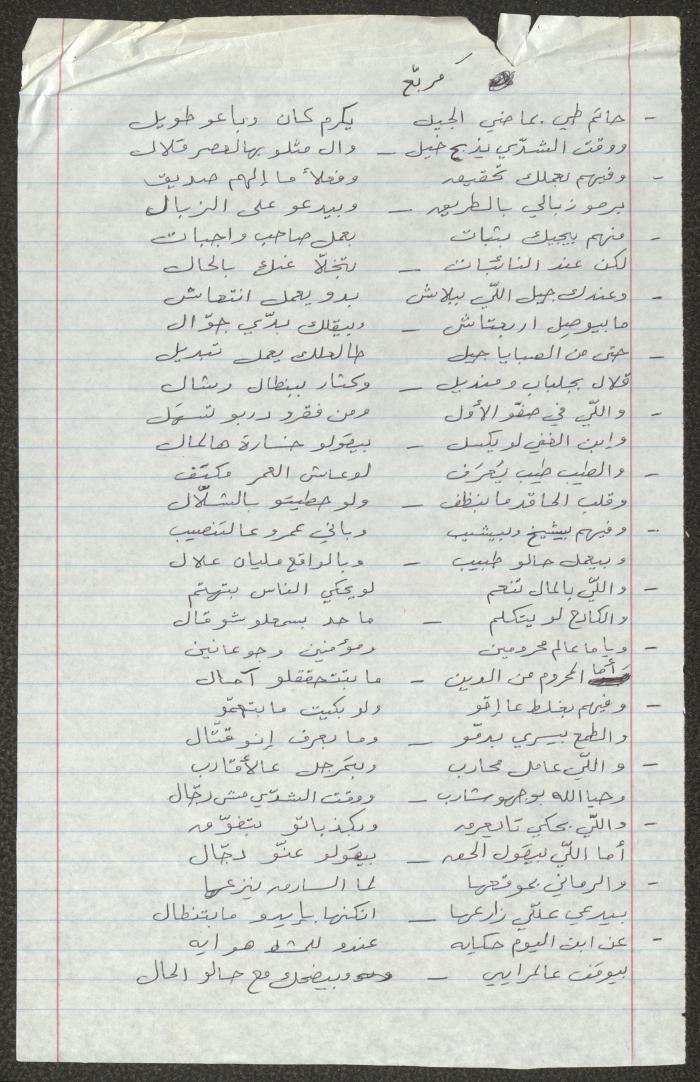 مربّع
- حاتم طي بماضي الجيل يكرم كان وباعو طويل
ووقت الشدّي يذبح خيل - وال مثلو بهالعصر قلال
- وفيهم بعملك تحقيقه وفعلاً ما إلهم صديق
برمو زبالي بالطريق - وبيدعو على الزبال
- منهم بيجيك بثبات بعمل صاحب واجبات
لكن عند النائبات - بتخلّا عنك بالحال
- وعندك جيل اللّي ببلاش بدو يعمل انتعاش
ما بيوصل اربعتاش - وبيقلك بدّي جوّال
- حتى من الصبايا جيل طالعلك يعمل تبديل
قلال بجلباب ومنديل - وكتار ببنطال وشال
- واللّي في صفّو الأول ومن فقرو دربو تسهّل
وابن الغني لو يكسل - بيقولو خسارة هالمال
- والطيب طيب يُعرَف لو عاش العمر مكتّف
وقلب الحاقد ما بنظف - ولو حطيتو بالشلّال
- وفيهم بيشيخ وبيشيب وباني عمرو عالتنصيب
وبيعمل حالو طبيب - وبالواقع مليان علال
- واللّي بالمال تنعم لو يحكي الناس بتهتم
والكادح لو يتكلم - ما حد بسمعلو شو قال
- وياما عالم محرومين ومؤمنين وجوعانين
أما المحروم من الدين - ما بتتحققلو آمال
- وفيهم بغلط عا إمّو ولو بكيت ما بتهمّو
والطمع بيسري بدمّو - وما بعرف إنو قتّال
- واللّي عامل محارب وبتمرجل عالأقارب
وحياالله بوجهو شارب - ووقت الشدّي مش رجّال
- واللّي بحكي تا يعرف وبكذباتو بتفوّق
أما اللّي بيقول الحق - بيقولو عنّو دجّال
- والرماني بموقعها لما السارق ينزعها
بيدعي عللّي زارعها - انكنها بإيدو ما بتنطال
- عن ابن اليوم حكايه عندو للمشط هوايه
بيوقف عالمرايي - وبيضحك مع حالو الحال